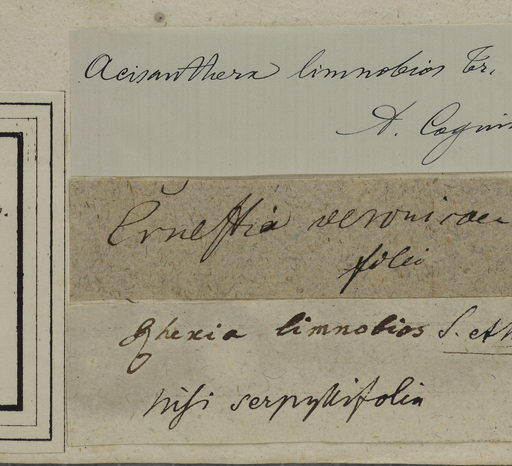 Acisanthera limnobios Tr.
A. Cogni
Ernestia veronicae
foli
Rhexia limnobios S. et M
nisi serpyllifolia